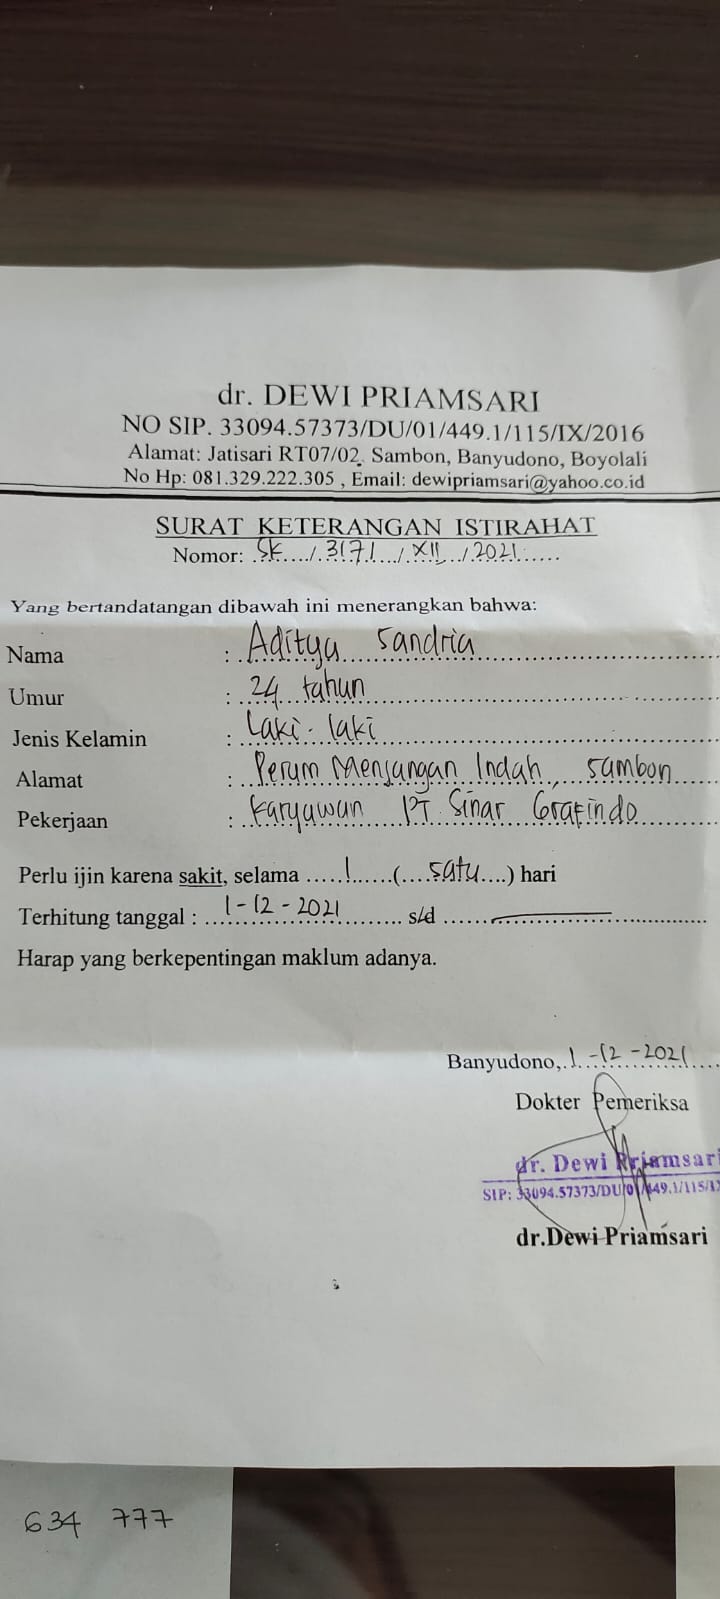 dr. DEWI PRIAMSARI
NO SIP. 33094.57373/DU/01/449.1/115/IX/2016
Alamat: Jatisari RT07/02, Sambon, Banyudono, Boyolali
No Hp: 081.329.222.305 , Email: dewipriamsari@yahoo.co.id
SURAT KETERANGAN ISTIRAHAT
Nomor: SK / 3171 / XII / 2021
Yang bertandatangan dibawah ini menerangkan bahwa:
Nama : Aditya Sandria
Umur : 24 tahun
Jenis Kelamin : Laki-laki
Alamat : Perum Menjangan Indah, Sambon
Pekerjaan : Karyawan PT Sinar Grafindo
Perlu ijin karena sakit, selama 1 (satu) hari
Terhitung tanggal : 1-12-2021 s/d —
Harap yang berkepentingan maklum adanya.
Banyudono, 1-12-2021
Dokter Pemeriksa
dr. Dewi Priamsari
SIP: 33094.57373/DU/01/449.1/115/IX
dr.Dewi Priamsari
634 777